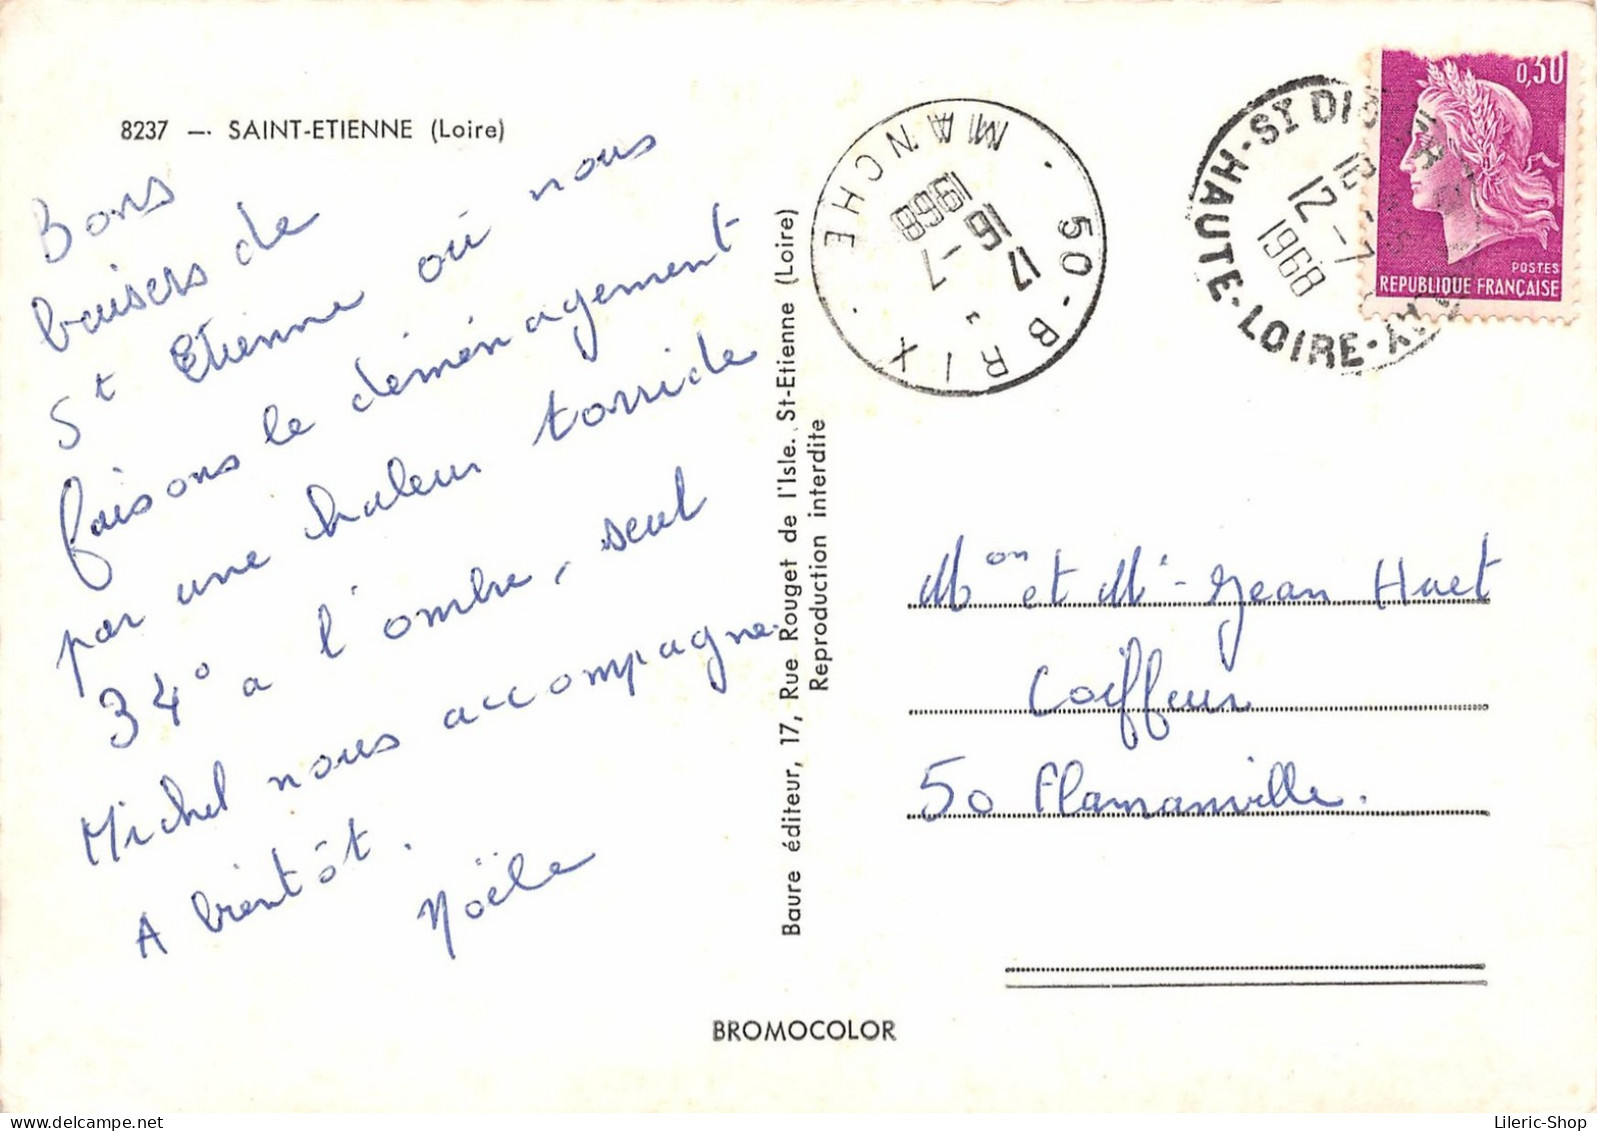 8237 — SAINT-ETIENNE (Loire)
Bons
baisers de
St Etienne où nous
faisons le déménagement
par une chaleur torride
34° a l'ombre, seul
Michel nous accompagne.
A bientôt.
Noële
Baure éditeur, 17, Rue Rouget de l'Isle. St-Etienne (Loire)
Reproduction interdite
BROMOCOLOR
50 - BRIX . MANCHE .
17 H
16 - 7
1968
HAUTE-LOIRE
12 - 7
1968
0,30
POSTES
REPUBLIQUE FRANÇAISE
Mon et Mr Jean Huet
Coiffeur
50 Flamanville.
Lileric-Shop